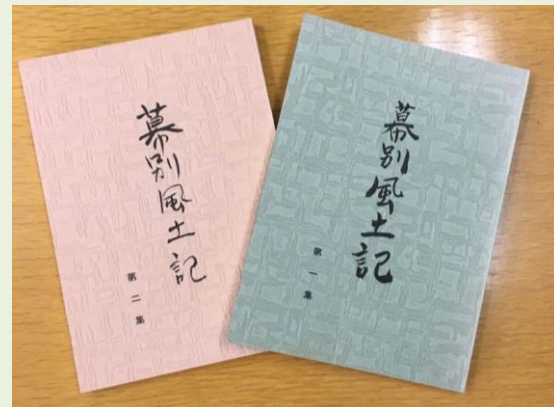 幕別風土記
第二集
幕別風土記
第一集